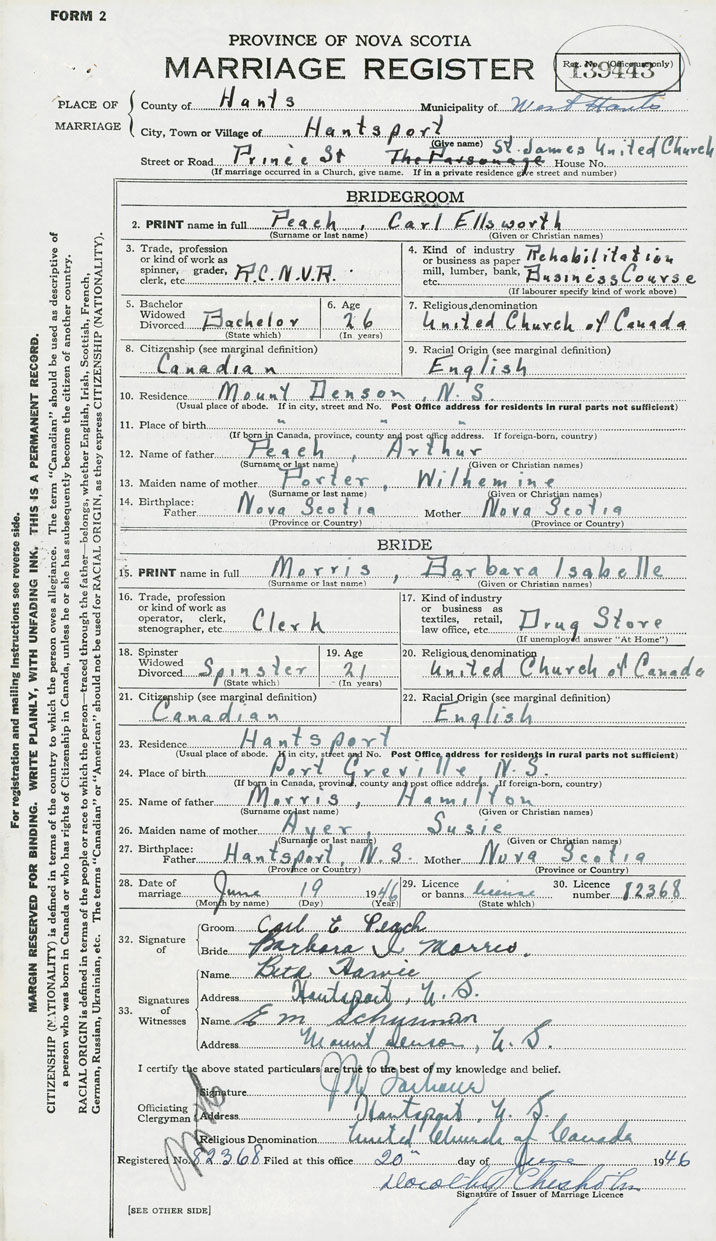 FORM 2
PROVINCE OF NOVA SCOTIA
MARRIAGE REGISTER
Reg. No. (Office use only)
139443
PLACE OF MARRIAGE
County of Hants Municipality of West Hants
City, Town or Village of Hantsport
(Give name) St. James United Church
Street or Road Prince St The Parsonage House No.
(If marriage occurred in a Church, give name. If in a private residence give street and number)
BRIDEGROOM
2. PRINT name in full Peach, Carl Ellsworth
(Surname or last name) (Given or Christian names)
3. Trade, profession or kind of work as spinner, grader, clerk, etc. R.C.N.V.R.
4. Kind of industry or business as paper mill, lumber, bank, etc. Rehabilitation Business Course
(If labourer specify kind of work above)
5. Bachelor Widowed Divorced Bachelor
(State which)
6. Age 26
(In years)
7. Religious denomination
United Church of Canada
8. Citizenship (see marginal definition)
Canadian
9. Racial Origin (see marginal definition)
English
10. Residence Mount Denson, N.S.
(Usual place of abode. If in city, street and No. Post Office address for residents in rural parts not sufficient)
11. Place of birth " " "
(If born in Canada, province, county and post office address. If foreign-born, country)
12. Name of father Peach, Arthur
(Surname or last name) (Given or Christian names)
13. Maiden name of mother Porter, Wilhemine
(Surname or last name) (Given or Christian names)
14. Birthplace: Father Nova Scotia Mother Nova Scotia
(Province or Country) (Province or Country)
BRIDE
15. PRINT name in full Morris, Barbara Isabelle
(Surname or last name) (Given or Christian names)
16. Trade, profession or kind of work as operator, clerk, stenographer, etc. Clerk
17. Kind of industry or business as textiles, retail, law office, etc. Drug Store
(If unemployed answer "At Home")
18. Spinster Widowed Divorced Spinster
(State which)
19. Age 21
(In years)
20. Religious denomination
United Church of Canada
21. Citizenship (see marginal definition)
Canadian
22. Racial Origin (see marginal definition)
English
23. Residence Hantsport
(Usual place of abode. If in city, street and No. Post Office address for residents in rural parts not sufficient)
24. Place of birth Port Greville, N.S.
(If born in Canada, province, county and post office address. If foreign-born, country)
25. Name of father Morris, Hamilton
(Surname or last name) (Given or Christian names)
26. Maiden name of mother Ayer, Susie
(Surname or last name) (Given or Christian names)
27. Birthplace: Father Hantsport, N.S. Mother Nova Scotia
(Province or Country) (Province or Country)
28. Date of marriage June 19 1946
(Month by name) (Day) (Year)
29. Licence or banns license
(State which)
30. Licence number 82368
32. Signature of
Groom Carl E Peach
Bride Barbara I. Morris.
33. Signatures of Witnesses
Name
Address Hantsport, N.S.
Name E M
Address Mount Denson, N.S.
I certify the above stated particulars are true to the best of my knowledge and belief.
Officiating Clergyman
Signature
Address Hantsport, N.S.
Religious Denomination United Church of Canada
Registered No. 82368 Filed at this office 20" day of June 1946
Dorothy Chisholm
Signature of Issuer of Marriage Licence
[SEE OTHER SIDE]
For registration and mailing instructions see reverse side.
MARGIN RESERVED FOR BINDING. WRITE PLAINLY, WITH UNFADING INK. THIS IS A PERMANENT RECORD.
CITIZENSHIP (NATIONALITY) is defined in terms of the country to which the person owes allegiance. The term "Canadian" should be used as descriptive of
a person who was born in Canada or who has rights of Citizenship in Canada, unless he or she has subsequently become the citizen of another country.
RACIAL ORIGIN is defined in terms of the people or race to which the person—traced through the father—belongs, whether English, Irish, Scottish, French,
German, Russian, Ukrainian, etc. The terms "Canadian" or "American" should not be used for RACIAL ORIGIN, as they express CITIZENSHIP (NATIONALITY).